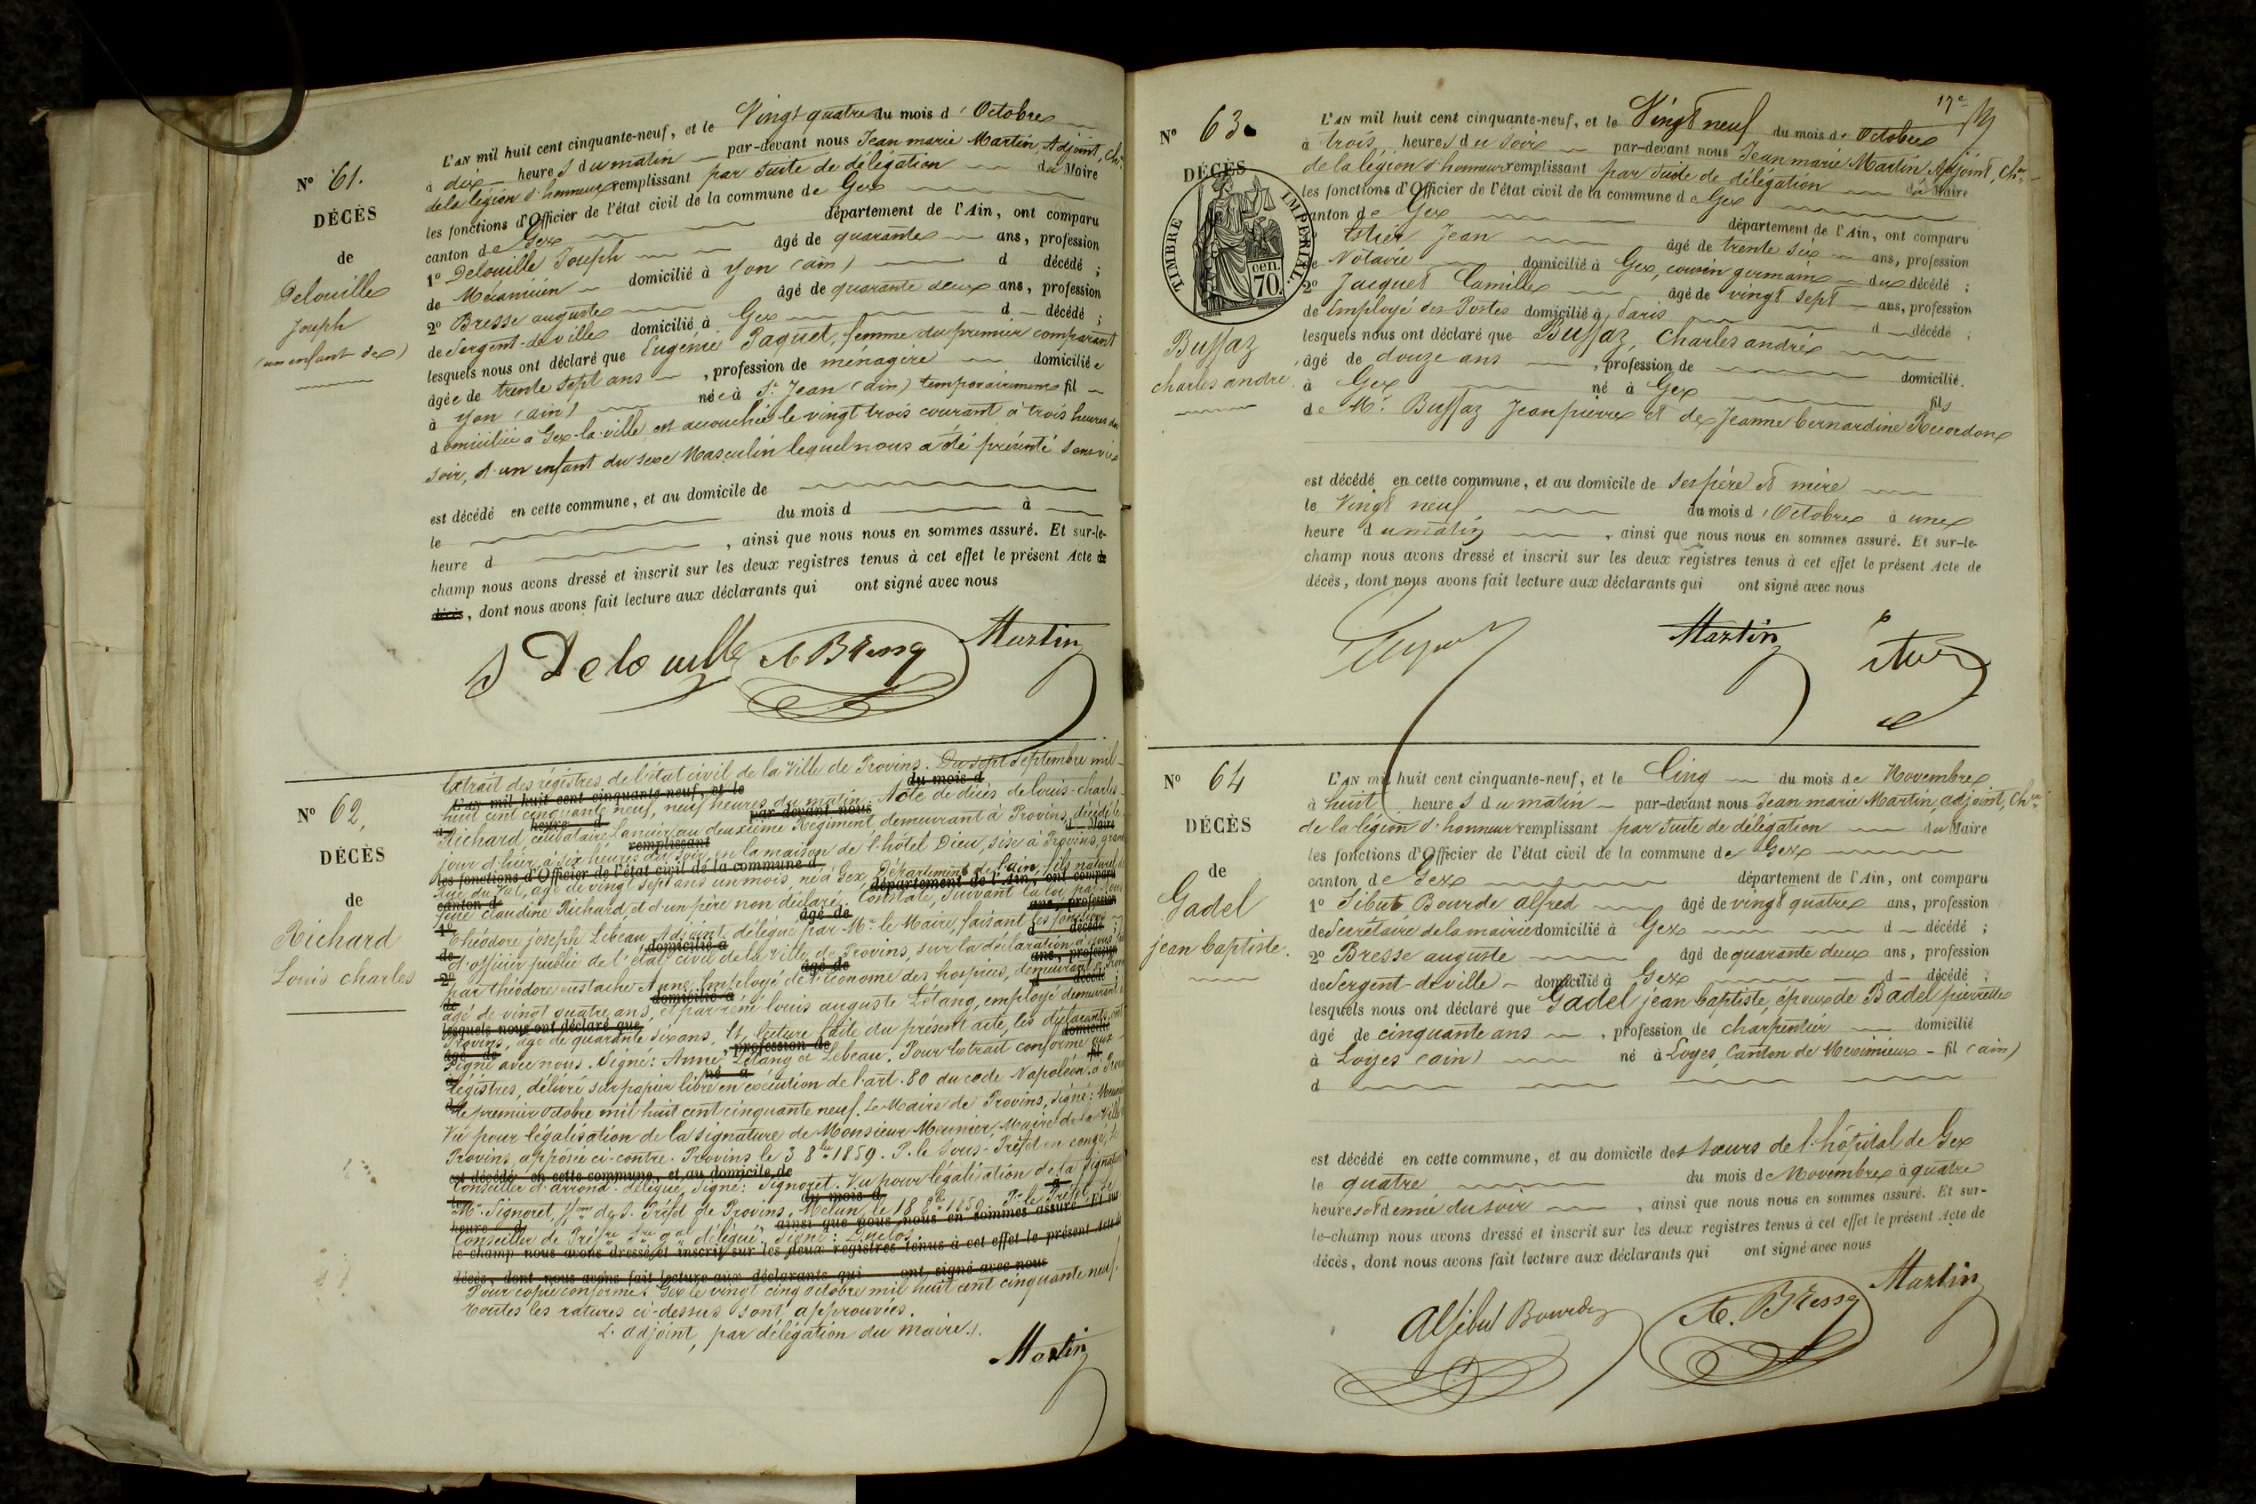 N° 61.
DÉCÈS
de
Delouille
Joseph
(un enfant de)
L'AN mil huit cent cinquante-neuf, et le Vingt quatre du mois d'Octobre
à dix heures du matin par-devant nous Jean marie Martin, Adjoint, Chr.
de la légion d'honneur remplissant par suite de délégation du Maire
les fonctions d'Officier de l'état civil de la commune de Gex
canton de Gex département de l'Ain, ont comparu
1° Delouille Joseph âgé de quarante ans, profession
de Mécanicien domicilié à Yon (ain) d décédé;
2° Bresse auguste âgé de quarante deux ans, profession
de Sergent-de-ville domicilié à Gex d décédé;
lesquels nous ont déclaré que Eugénie Paquet, femme du premier comparant
âgée de trente sept ans, profession de ménagère domiciliée
à Yon (ain) née à St. Jean (ain) temporairement fil
domiciliée à Gex-la-ville est accouchée le vingt trois courant à trois heures du
soir, d'un enfant du sexe Masculin lequel nous a été présenté sans vie
est décédé en cette commune, et au domicile de
le du mois d à
heure d , ainsi que nous nous en sommes assuré. Et sur-le-
champ nous avons dressé et inscrit sur les deux registres tenus à cet effet le présent Acte de
décès, dont nous avons fait lecture aux déclarants qui ont signé avec nous
J Delouille A Bresse Martin
N° 62.
DÉCÈS
de
Richard
Louis charles
Extrait des régistres de l'état civil de la Ville de Provins. Du sept Septembre mil
L'AN mil huit cent cinquante-neuf, et le du mois d
huit cent cinquante neuf, neuf heures du matin. Acte de décès de louis-charles
heure d par-devant nous
Richard célibataire, lancier au deuxième Régiment demeurant à Provins, décédé le
remplissant d Maire
jour d'hier, à six heures du soir, en la maison de l'hôtel Dieu, sise à Provins, grande
les fonctions d'Officier de l'état civil de la commune d
Rue du Val, âgé de vingt sept ans un mois, né à Gex, Département de l'ain, fils naturel de
canton d département de l'Ain, ont comparu
feue claudine Richard, et d'un père non déclaré. Constaté, suivant la loi, par Nous
1° âgé de ans, profession
Théodore joseph Lebeau Adjoint délégué par Mr. le Maire, faisant les fonctions
de domicilié à d décédé;
d'officier public de l'état civil de la Ville de Provins, sur la déclaration à nous faite
2° âgé de ans, profession
par théodore eustache Anne, Employé de l'économe des hospices, demeurant à Provins
de domicilié à d décédé
âgé de vingt quatre ans, et par réné louis auguste Létang, employé demeurant à
lesquels nous ont déclaré que
Provins, âgé de quarante six ans. Et, lecture faite du présent acte, les déclarants ont
âgé de profession de domicilié
signé avec nous. Signé: Anne, Létang et Lebeau. Pour Extrait conforme aux
à né à fil
Régistres, délivré sur papier libre en exécution de l'art. 80 du code Napoléon. à Provins
d
le premier octobre mil huit cent cinquante neuf. Le Maire de Provins, signé: Meunier
Vû pour légalisation de la signature de Monsieur Meunier, Maire de la Ville
Provins apposée ci-contre. Provins le 3 8bre 1859. P. le Sous-Préfet en congé, le
est décédé en cette commune, et au domicile de
Conseiller d'arrond. délégué, signé: Signoret. Vu pour légalisation de la signature
le du mois d à
Mr. Signoret, de S. Préfet de Provins. Melun le 18 8bre 1859. Pr. le Préfet, le
heure d ainsi que nous nous en sommes assuré. Et sur-
Conseiller de Préfre Sre gal délégué. Signé: Duclos.
le-champ nous avons dressé et inscrit sur les deux registres tenus à cet effet le présent Acte de
décès, dont nous avons fait lecture aux déclarants qui ont signé avec nous
Pour copie conforme. Gex le vingt cinq octobre mil huit cent cinquante neuf.
Toutes les ratures ci-dessus sont approuvées.
L'adjoint, par délégation du maire.
Martin
17e
N° 63.
DÉCÈS
TIMBRE IMPÉRIAL
70 cen.
Buffaz
charles andré.
L'AN mil huit cent cinquante-neuf, et le Vingt neuf du mois de Octobre
à trois heures du soir par-devant nous Jean marie Martin Adjoint, Chr.
de la légion d'honneur remplissant par suite de délégation du Maire
les fonctions d'Officier de l'état civil de la commune de Gex
canton de Gex département de l'Ain, ont comparu
Jean âgé de trente six ans, profession
de Notaire domicilié à Gex, cousin germain du décédé;
2° Jacquet Camille âgé de vingt sept ans, profession
de Employé des Postes domicilié à Paris d décédé;
lesquels nous ont déclaré que Buffaz, Charles andré
âgé de douze ans, profession de domicilié
à Gex né à Gex fils
de Mr. Buffaz Jean pierre et de Jeanne bernardine Recordon
est décédé en cette commune, et au domicile de ses père et mère
le Vingt neuf du mois d'Octobre à une
heure du matin, ainsi que nous nous en sommes assuré. Et sur-le-
champ nous avons dressé et inscrit sur les deux registres tenus à cet effet le présent Acte de
décès, dont nous avons fait lecture aux déclarants qui ont signé avec nous
Martin
N° 64
DÉCÈS
de
Gadel
jean baptiste.
L'AN mil huit cent cinquante-neuf, et le Cinq du mois de Novembre
à huit heures du matin par-devant nous Jean marie Martin, adjoint, Chr.
de la légion d'honneur remplissant par suite de délégation du Maire
les fonctions d'Officier de l'état civil de la commune de Gex
canton de Gex département de l'Ain, ont comparu
1° Sibut Bourde Alfred âgé de vingt quatre ans, profession
de Secrétaire de la mairie domicilié à Gex d décédé;
2° Bresse auguste âgé de quarante deux ans, profession
de Sergent-de-ville domicilié à Gex d décédé;
lesquels nous ont déclaré que Gadel jean baptiste, époux de Badel pierrette
âgé de cinquante ans, profession de charpentier domicilié
à Loyes (ain) né à Loyes, Canton de Meximieux fil (ain)
d
est décédé en cette commune, et au domicile des soeurs de l'hôpital de Gex
le quatre du mois de Novembre à quatre
heures et demie du soir, ainsi que nous nous en sommes assuré. Et sur-
le-champ nous avons dressé et inscrit sur les deux registres tenus à cet effet le présent Acte de
décès, dont nous avons fait lecture aux déclarants qui ont signé avec nous
A Sibut Bourde A. Bresse Martin